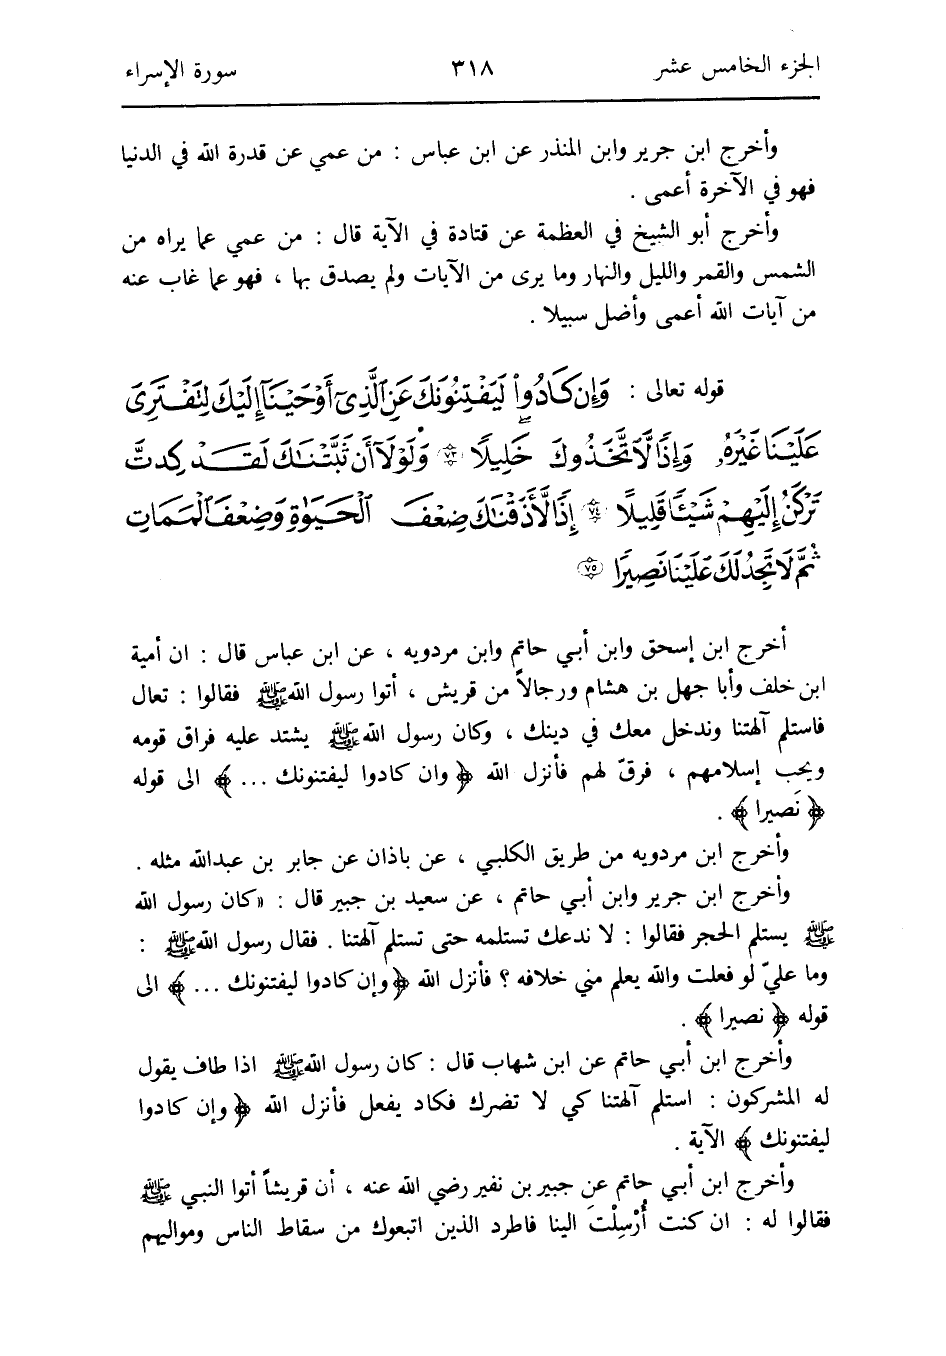 الجزء الخامس عشر ٣١٨ سورة الإسراء
وأخرج ابن جرير وابن المنذر عن ابن عباس : من عمي عن قدرة الله في الدنيا
فهو في الآخرة أعمى .
وأخرج أبو الشيخ في العظمة عن قتادة في الآية قال : من عمي عما يراه من
الشمس والقمر والليل والنهار وما يرى من الآيات ولم يصدق بها ، فهو عما غاب عنه
من آيات الله أعمى وأضل سبيلا .
قوله تعالى : وَإِن كَادُواْ لَيَفْتِنُونَكَ عَنِ ٱلَّذِىٓ أَوْحَيْنَآ إِلَيْكَ لِتَفْتَرِىَ
عَلَيْنَا غَيْرَهُۥ وَإِذًا لَّٱتَّخَذُوكَ خَلِيلًا ﴿٧٣﴾ وَلَوْلَآ أَن ثَبَّتْنَٰكَ لَقَدْ كِدتَّ
تَرْكَنُ إِلَيْهِمْ شَيْـًٔا قَلِيلًا ﴿٧٤﴾ إِذًا لَّأَذَقْنَٰكَ ضِعْفَ ٱلْحَيَوٰةِ وَضِعْفَ ٱلْمَمَاتِ
ثُمَّ لَا تَجِدُ لَكَ عَلَيْنَا نَصِيرًا ﴿٧٥﴾
أخرج ابن إسحق وابن أبي حاتم وابن مردويه ، عن ابن عباس قال : ان أمية
ابن خلف وأبا جهل بن هشام ورجالاً من قريش ، أتوا رسول الله ﷺ فقالوا : تعال
فاستلم آلهتنا وندخل معك في دينك ، وكان رسول الله ﷺ يشتد عليه فراق قومه
ويحب إسلامهم ، فرقّ لهم فأنزل الله ﴿ وان كادوا ليفتنونك ... ﴾ الى قوله
﴿ نَصيرا ﴾ .
وأخرج ابن مردويه من طريق الكلبي ، عن باذان عن جابر بن عبدالله مثله .
وأخرج ابن جرير وابن أبي حاتم ، عن سعيد بن جبير قال : «كان رسول الله
ﷺ يستلم الحجر فقالوا : لا ندعك تستلمه حتى تستلم آلهتنا . فقال رسول الله ﷺ :
وما عليّ لو فعلت والله يعلم مني خلافه ؟ فأنزل الله ﴿وإن كادوا ليفتنونك ... ﴾ الى
قوله ﴿ نصيرا ﴾ .
وأخرج ابن أبي حاتم عن ابن شهاب قال : كان رسول الله ﷺ اذا طاف يقول
له المشركون : استلم آلهتنا كي لا تضرك فكاد يفعل فأنزل الله ﴿ وإن كادوا
ليفتنونك ﴾ الآية .
وأخرج ابن أبي حاتم عن جبير بن نفير رضي الله عنه ، أن قريشاً أتوا النبي ﷺ
فقالوا له : ان كنت أُرْسِلْتَ الينا فاطرد الذين اتبعوك من سقاط الناس ومواليهم